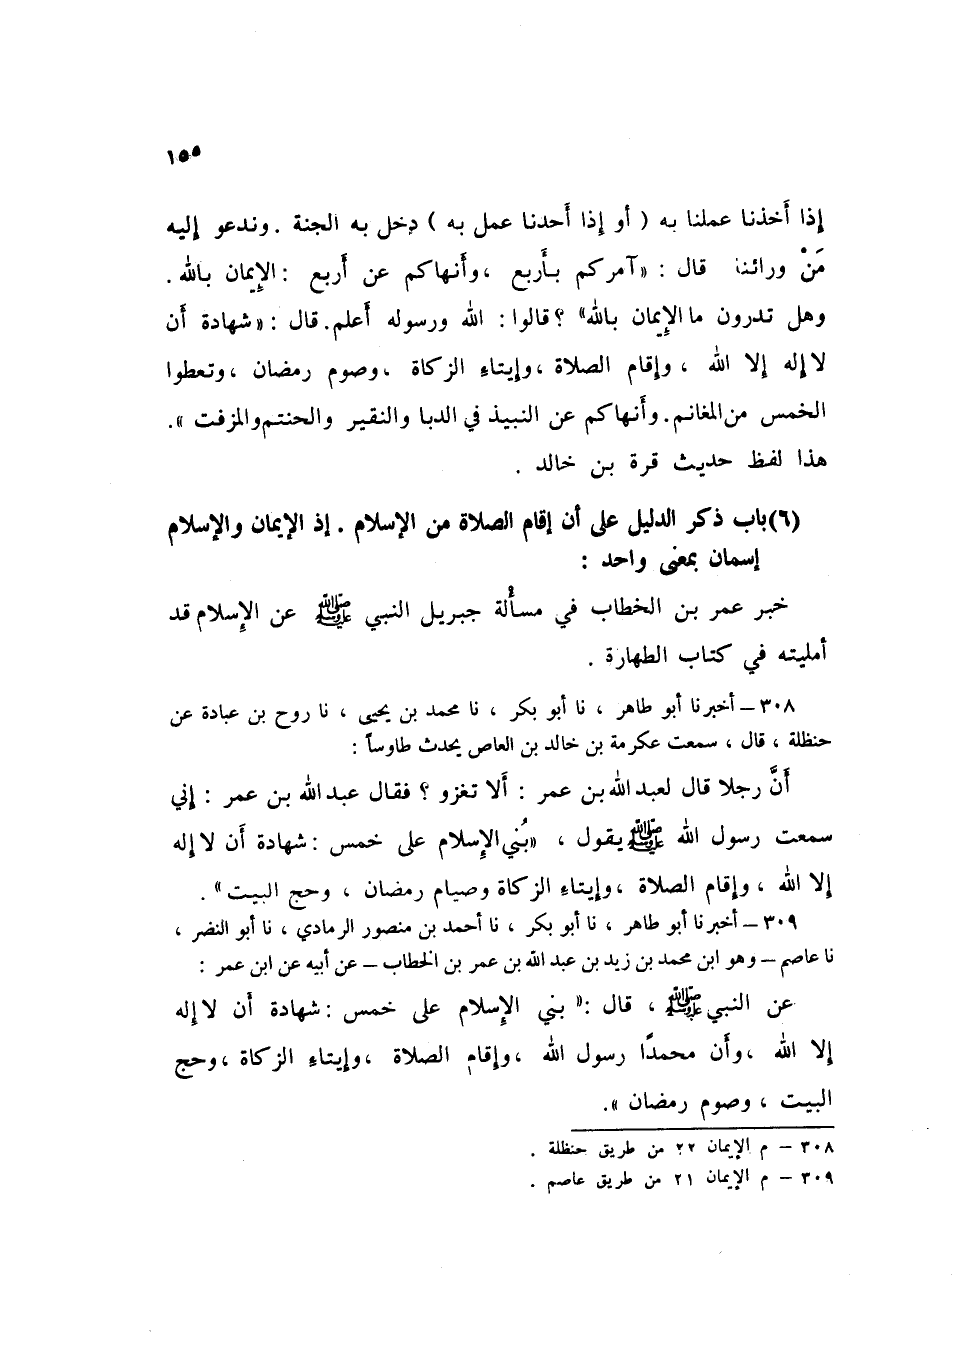 ١٥٥
إذا أَخذنا عملنا به ( أو إذا أَحدنا عمل به ) دخل به الجنة . وندعو إليه
مَنْ ورائنا قال : «آمركم بأَربع ، وأَنهاكم عن أَربع : الإِيمان بالله .
وهل تدرون ما الإِيمان بالله» ؟ قالوا : الله ورسوله أَعلم. قال : «شهادة أَن
لا إله إلا الله ، وإقام الصلاة ، وإيتاءِ الزكاة ، وصوم رمضان ، وتعطوا
الخمس من المغانم. وأَنهاكم عن النبيذ في الدبا والنقير والحنتم والمزفت ».
هذا لفظ حديث قرة بن خالد .
(٦) باب ذكر الدليل على أن إقام الصلاة من الإسلام . إذ الإيمان والإسلام
إسمان بمعنى واحد :
خبر عمر بن الخطاب في مسأَلة جبريل النبي ﷺ عن الإِسلام قد
أمليته في كتاب الطهارة .
٣٠٨ – أخبرنا أبو طاهر ، نا أبو بكر ، نا محمد بن يحيى ، نا روح بن عبادة عن
حنظلة ، قال ، سمعت عكرمة بن خالد بن العاص يحدث طاوساً :
أَنَّ رجلا قال لعبد الله بن عمر : أَلا تغزو ؟ فقال عبد الله بن عمر : إني
سمعت رسول الله ﷺ يقول ، «بُني الإِسلام على خمس : شهادة أَن لا إله
إلا الله ، وإقام الصلاة ، وإيتاءِ الزكاة وصيام رمضان ، وحج البيت» .
٣٠٩ – أخبرنا أبو طاهر ، نا أبو بكر ، نا أحمد بن منصور الرمادي ، نا أبو النضر ،
نا عاصم – وهو ابن محمد بن زيد بن عبد الله بن عمر بن الخطاب – عن أبيه عن ابن عمر :
عن النبي ﷺ ، قال : « بني الإِسلام على خمس : شهادة أَن لا إله
إلا الله ، وأَن محمدًا رسول الله ، وإقام الصلاة ، وإيتاءِ الزكاة ، وحج
البيت ، وصوم رمضان ».
٣٠٨ – م الإيمان ٢٢ من طريق حنظلة .
٣٠٩ – م الإيمان ٢١ من طريق عاصم .